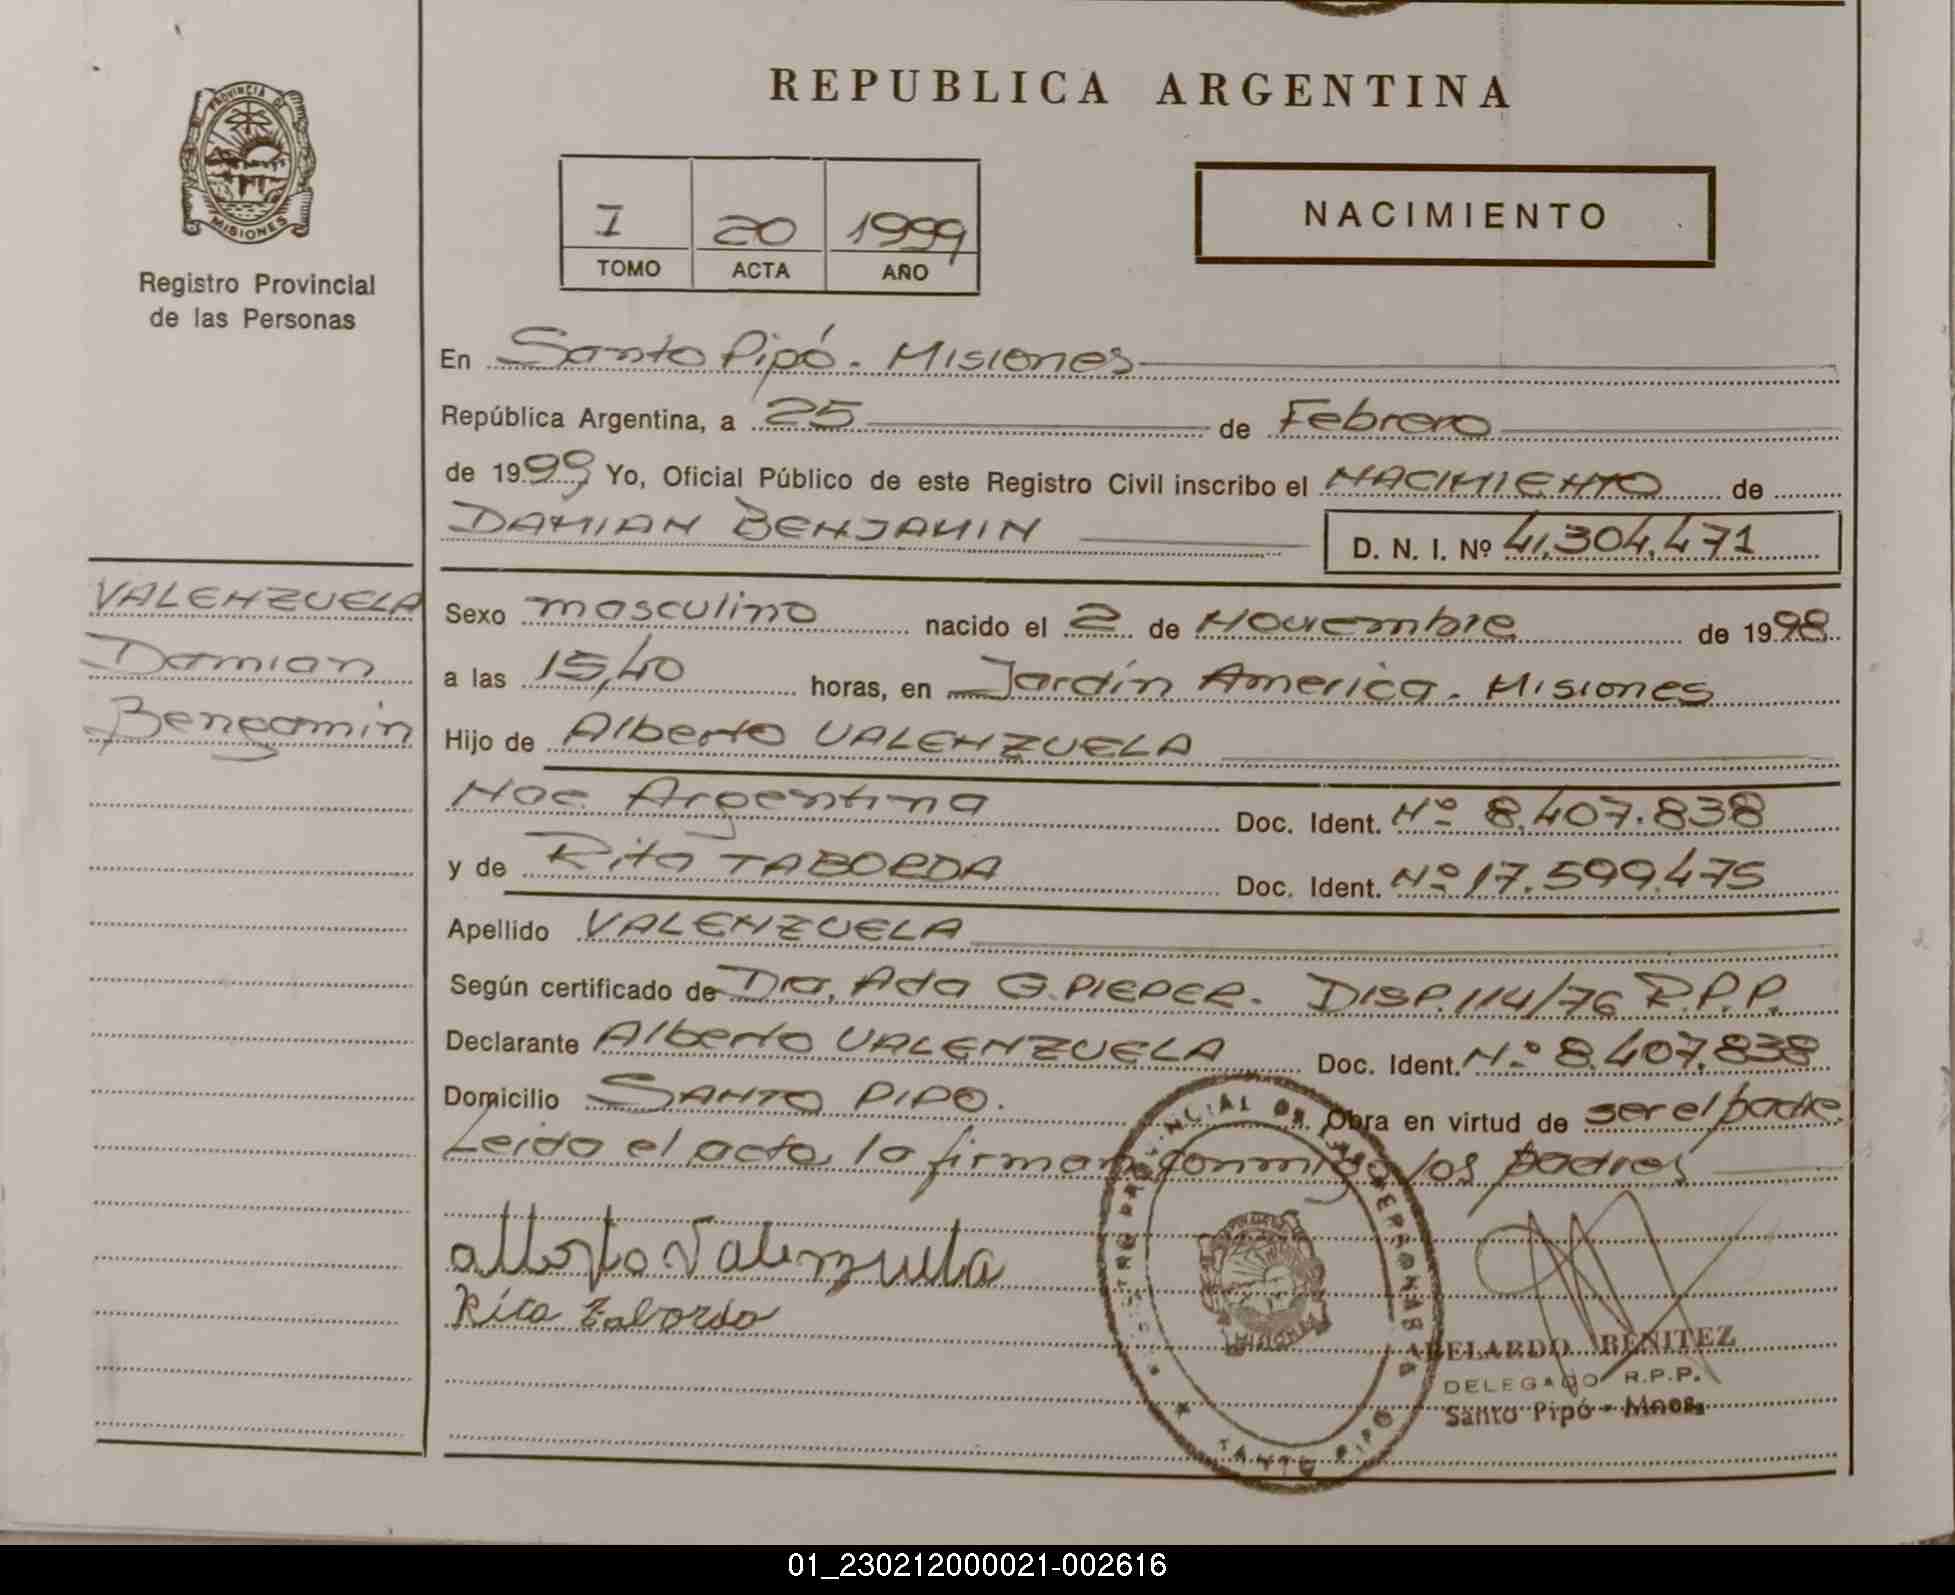 REPUBLICA ARGENTINA
PROVINCIA DE
MISIONES
Registro Provincial
de las Personas
I 20 1999
TOMO ACTA AÑO
NACIMIENTO
En Santo Pipó. Misiones
República Argentina, a 25 de Febrero
de 1999 Yo, Oficial Público de este Registro Civil inscribo el NACIMIENTO de
DAMIAN BENJAMIN D. N. I. Nº 41.304.471
VALENZUELA
Damian
Bengamin
Sexo masculino nacido el 2 de Noviembre de 1998
a las 15,40 horas, en Jardín America. Misiones
Hijo de Alberto VALENZUELA
Nac. Argentina Doc. Ident. Nº 8.407.838
y de Rita TABORDA Doc. Ident. Nº 17.599.475
Apellido VALENZUELA
Según certificado de Dra. Ada G. PIEPER. DISP. 114/76 R.P.P.
Declarante Alberto VALENZUELA Doc. Ident. Nº 8.407.838
Domicilio SANTO PIPO. Obra en virtud de ser el padre
Leida el acta, la firman conmigo los padres
Alberto Valenzuela
Rita Taborda
PROVINCIAL DE LAS PERSONAS
MISIONES
SANTO PIPO
ABELARDO BENITEZ
DELEGADO R.P.P.
Santo Pipó - Mnes.
01_230212000021-002616